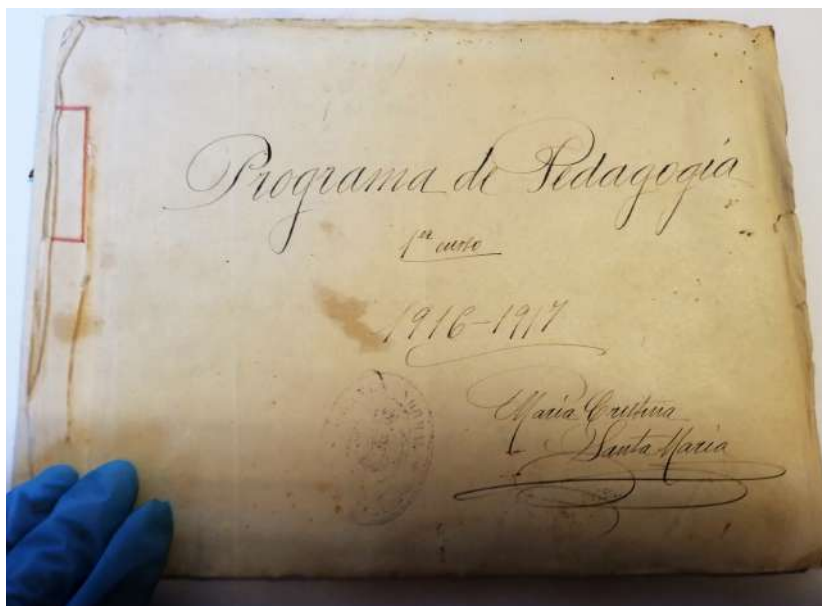 Programa de Pedagogía
1er curso
1916-1917
María Cristina
Santa María